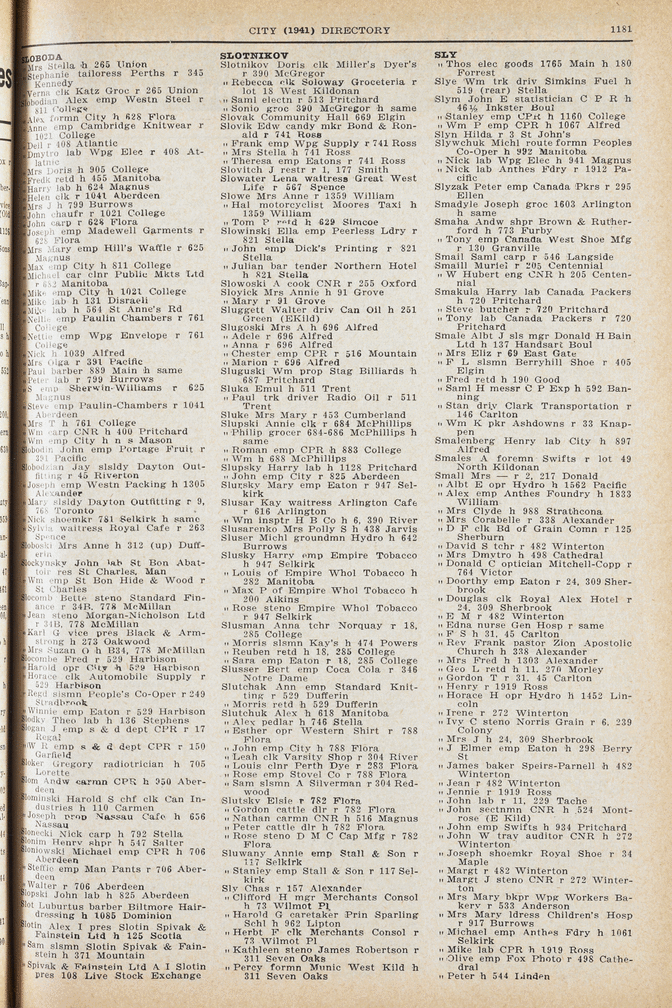 CITY (1941) DIRECTORY 1181
SLOBODA
„ Mrs Stella h 265 Union
„ Stephanie tailoress Perths r 345
Kennedy
„ Verna clk Katz Groc r 265 Union
Slobodian Alex emp Westn Steel r
811 College
„ Alex formn City h 628 Flora
„ Anne emp Cambridge Knitwear r
1021 College
„ Deil r 408 Atlantic
„ Dmytro lab Wpg Elec r 408 At-
lantic
„ Mrs Doris h 905 College
„ Fredk retd h 455 Manitoba
„ Harry lab h 624 Magnus
„ Helen clk r 1041 Aberdeen
„ Mrs J h 799 Burrows
„ John chaufr r 1021 College
„ John carp r 628 Flora
„ Joseph emp Madewell Garments r
628 Flora
„ Mrs Mary emp Hill's Waffle r 625
Magnus
„ Max emp City h 811 College
„ Michael car clnr Public Mkts Ltd
r 882 Manitoba
„ Mike emp City h 1021 College
„ Mike lab h 131 Disraeli
„ Mike lab h 564 St Anne's Rd
„ Nellie emp Paulin Chambers r 761
College
„ Nettie emp Wpg Envelope r 761
College
„ Nick h 1039 Alfred
„ Mrs Olga r 391 Pacific
„ Paul barber 889 Main h same
„ Peter lab r 799 Burrows
„ S emp Sherwin-Williams r 625
Magnus
„ Steve emp Paulin-Chambers r 1041
Aberdeen
„ Mrs T h 761 College
„ Wm carp CNR h 400 Pritchard
„ Wm emp City h n s Mason
Slobodin John emp Portage Fruit r
391 Pacific
Slobodzian Jay slsldy Dayton Out-
fitting r 45 Riverton
„ Joseph emp Westn Packing h 1305
Alexander
„ Mary slsldy Dayton Outfitting r 9,
768 Toronto
„ Nick shoemkr 781 Selkirk h same
„ Sylvia waitress Royal Cafe r 263
Spence
Sloboski Mrs Anne h 312 (up) Duff-
erin
Slockynsky John lab St Bon Abat-
toir res St Charles, Man
„ Wm emp St Bon Hide & Wood r
St Charles
Slocomb Bette steno Standard Fin-
ance r 34B, 778 McMillan
„ Jean steno Morgan-Nicholson Ltd
r 34B, 778 McMillan
„ Karl G vice pres Black & Arm-
strong h 273 Oakwood
„ Mrs Suzan O h B34, 778 McMillan
Slocombe Fred r 529 Harbison
„ Harold opr City h 529 Harbison
„ Horace clk Automobile Supply r
529 Harbison
„ Regd slsmn People's Co-Oper r 249
Stradbrook
„ Winnie emp Eaton r 529 Harbison
Slodky Theo lab h 136 Stephens
Slogan J emp s & d dept CPR r 17
Regal
„ W R emp s & d dept CPR r 150
Garfield
Sloker Gregory radiotrician h 705
Lorette
Slom Andw carmn CPR h 950 Aber-
deen
Slominski Harold S chf clk Can In-
dustries h 110 Carmen
„ Joseph prop Nassau Cafe h 656
Nassau
Slonecki Nick carp h 792 Stella
Slonim Henry shpr h 547 Salter
Sloniowski Michael emp CPR h 706
Aberdeen
„ Steffie emp Man Pants r 706 Aber-
deen
„ Walter r 706 Aberdeen
Slopski John lab h 825 Aberdeen
Slot Luburtus barber Biltmore Hair-
dressing h 1085 Dominion
Slotin Alex I pres Slotin Spivak &
Fainstein Ltd h 125 Scotia
„ Sam slsmn Slotin Spivak & Fain-
stein h 371 Mountain
„ Spivak & Fainstein Ltd A I Slotin
pres 108 Live Stock Exchange
SLOTNIKOV
Slotnikov Doris clk Miller's Dyer's
r 390 McGregor
„ Rebecca clk Soloway Groceteria r
lot 18 West Kildonan
„ Saml electn r 513 Pritchard
„ Sonio groc 390 McGregor h same
Slovak Community Hall 669 Elgin
Slovik Edw candy mkr Bond & Ron-
ald r 741 Ross
„ Frank emp Wpg Supply r 741 Ross
„ Mrs Stella h 741 Ross
„ Theresa emp Eatons r 741 Ross
Slovitch J restr r 1, 177 Smith
Slowater Lena waitress Great West
Life r 567 Spence
Slowe Mrs Anne r 1359 William
„ Hal motorcyclist Moores Taxi h
1359 William
„ Tom P retd h 629 Simcoe
Slowinski Ella emp Peerless Ldry r
821 Stella
„ John emp Dick's Printing r 821
Stella
„ Julian bar tender Northern Hotel
h 821 Stella
Slowoski A cook CNR r 255 Oxford
Sloyick Mrs Annie h 91 Grove
„ Mary r 91 Grove
Sluggett Walter driv Can Oil h 251
Green (EKild)
Slugoski Mrs A h 696 Alfred
„ Adele r 696 Alfred
„ Anna r 696 Alfred
„ Chester emp CPR r 516 Mountain
„ Marion r 696 Alfred
Sluguski Wm prop Stag Billiards h
687 Pritchard
Sluka Emul h 511 Trent
„ Paul trk driver Radio Oil r 511
Trent
Sluke Mrs Mary r 453 Cumberland
Slupski Annie clk r 684 McPhillips
„ Philip grocer 684-686 McPhillips h
same
„ Roman emp CPR h 883 College
„ Wm h 688 McPhillips
Slupsky Harry lab h 1128 Pritchard
„ John emp City r 825 Aberdeen
Slurjsky Mary emp Eaton r 947 Sel-
kirk
Slusar Kay waitress Arlington Cafe
r 616 Arlington
„ Wm insptr H B Co h 6, 390 River
Slusarenko Mrs Polly S h 438 Jarvis
Sluser Michl groundmn Hydro h 642
Burrows
Slusky Harry emp Empire Tobacco
h 947 Selkirk
„ Louis of Empire Whol Tobacco h
282 Manitoba
„ Max P of Empire Whol Tobacco h
200 Aikins
„ Rose steno Empire Whol Tobacco
r 947 Selkirk
Slusman Anna tchr Norquay r 18,
285 College
„ Morris slsmn Kay's h 474 Powers
„ Reuben retd h 18, 285 College
„ Sara emp Eaton r 18, 285 College
Slusser Bert emp Coca Cola r 346
Notre Dame
Slutchak Ann emp Standard Knit-
ting r 529 Dufferin
„ Morris retd h 529 Dufferin
Slutchuk Alex h 618 Manitoba
„ Alex pedlar h 746 Stella
„ Esther opr Western Shirt r 788
Flora
„ John emp City h 788 Flora
„ Leah clk Varsity Shop r 304 River
„ Louis clnr Perth Dye r 283 Flora
„ Rose emp Stovel Co r 788 Flora
„ Sam slsmn A Silverman r 304 Red-
wood
Slutsky Elsie r 782 Flora
„ Gordon cattle dlr r 782 Flora
„ Nathan carmn CNR h 516 Magnus
„ Peter cattle dlr h 782 Flora
„ Rose steno D M C Cap Mfg r 782
Flora
Sluwany Anne emp Stall & Son r
117 Selkirk
„ Stanley emp Stall & Son r 117 Sel-
kirk
Sly Chas r 157 Alexander
„ Clifford H mgr Merchants Consol
h 73 Wilmot Pl
„ Harold G caretaker Prin Sparling
Schl h 962 Lipton
„ Herbt F clk Merchants Consol r
73 Wilmot Pl
„ Kathleen steno James Robertson r
311 Seven Oaks
„ Percy formn Munic West Kild h
311 Seven Oaks
SLY
„ Thos elec goods 1765 Main h 180
Forrest
Slye Wm trk driv Simkins Fuel h
519 (rear) Stella
Slym John E statistician C P R h
46½ Inkster Boul
„ Stanley emp CPR h 1160 College
„ Wm P emp CPR h 1067 Alfred
Slyn Hilda r 3 St John's
Slywchuk Michl route formn Peoples
Co-Oper h 992 Manitoba
„ Nick lab Wpg Elec h 941 Magnus
„ Nick lab Anthes Fdry r 1912 Pa-
cific
Slyzak Peter emp Canada Pkrs r 295
Ellen
Smadyle Joseph groc 1603 Arlington
h same
Smaha Andw shpr Brown & Ruther-
ford h 773 Furby
„ Tony emp Canada West Shoe Mfg
r 130 Granville
Smail Saml carp r 546 Langside
Smaill Muriel r 205 Centennial
„ W Hubert eng CNR h 205 Centen-
nial
Smakula Harry lab Canada Packers
h 720 Pritchard
„ Steve butcher r 720 Pritchard
„ Tony lab Canada Packers r 720
Pritchard
Smale Albt J sls mgr Donald H Bain
Ltd h 137 Handsart Boul
„ Mrs Eliz r 69 East Gate
„ F L slsmn Berryhill Shoe r 405
Elgin
„ Fred retd h 190 Good
„ Saml H messr C P Exp h 592 Ban-
ning
„ Stan driv Clark Transportation r
146 Carlton
„ Wm K pkr Ashdowns r 33 Knap-
pen
Smalenberg Henry lab City h 897
Alfred
Smales A foremn Swifts r lot 49
North Kildonan
Small Mrs — r 2, 217 Donald
„ Albt E opr Hydro h 1562 Pacific
„ Alex emp Anthes Foundry h 1833
William
„ Mrs Clyde h 988 Strathcona
„ Mrs Corabelle r 338 Alexander
„ D F clk Bd of Grain Comn r 125
Sherburn
„ David S tchr r 482 Winterton
„ Mrs Dmytro h 498 Cathedral
„ Donald C optician Mitchell-Copp r
764 Victor
„ Doorthy emp Eaton r 24, 309 Sher-
brook
„ Douglas clk Royal Alex Hotel r
24, 309 Sherbrook
„ E M r 482 Winterton
„ Edna nurse Gen Hosp r same
„ F S h 31, 45 Carlton
„ Rev Frank pastor Zion Apostolic
Church h 338 Alexander
„ Mrs Fred h 1303 Alexander
„ Geo L retd h 11, 270 Morley
„ Gordon T r 31, 45 Carlton
„ Henry r 1919 Ross
„ Horace H opr Hydro h 1452 Lin-
coln
„ Irene r 272 Winterton
„ Ivy C steno Norris Grain r 6, 239
Colony
„ Mrs J h 24, 309 Sherbrook
„ J Elmer emp Eaton h 298 Berry
St
„ James baker Speirs-Parnell h 482
Winterton
„ Jean r 482 Winterton
„ Jennie r 1919 Ross
„ John lab r 11, 229 Tache
„ John sectnmn CNR h 524 Mont-
rose (E Kild)
„ John emp Swifts h 934 Pritchard
„ John W tray auditor CNR h 272
Winterton
„ Joseph shoemkr Royal Shoe r 34
Maple
„ Margt r 482 Winterton
„ Margt J steno CNR r 272 Winter-
ton
„ Mrs Mary bkpr Wpg Workers Ba-
kery r 533 Anderson
„ Mrs Mary ldress Children's Hosp
r 917 Burrows
„ Michael emp Anthes Fdry h 1061
Selkirk
„ Mike lab CPR h 1919 Ross
„ Olive emp Fox Photo r 498 Cathe-
dral
„ Peter h 544 Linden